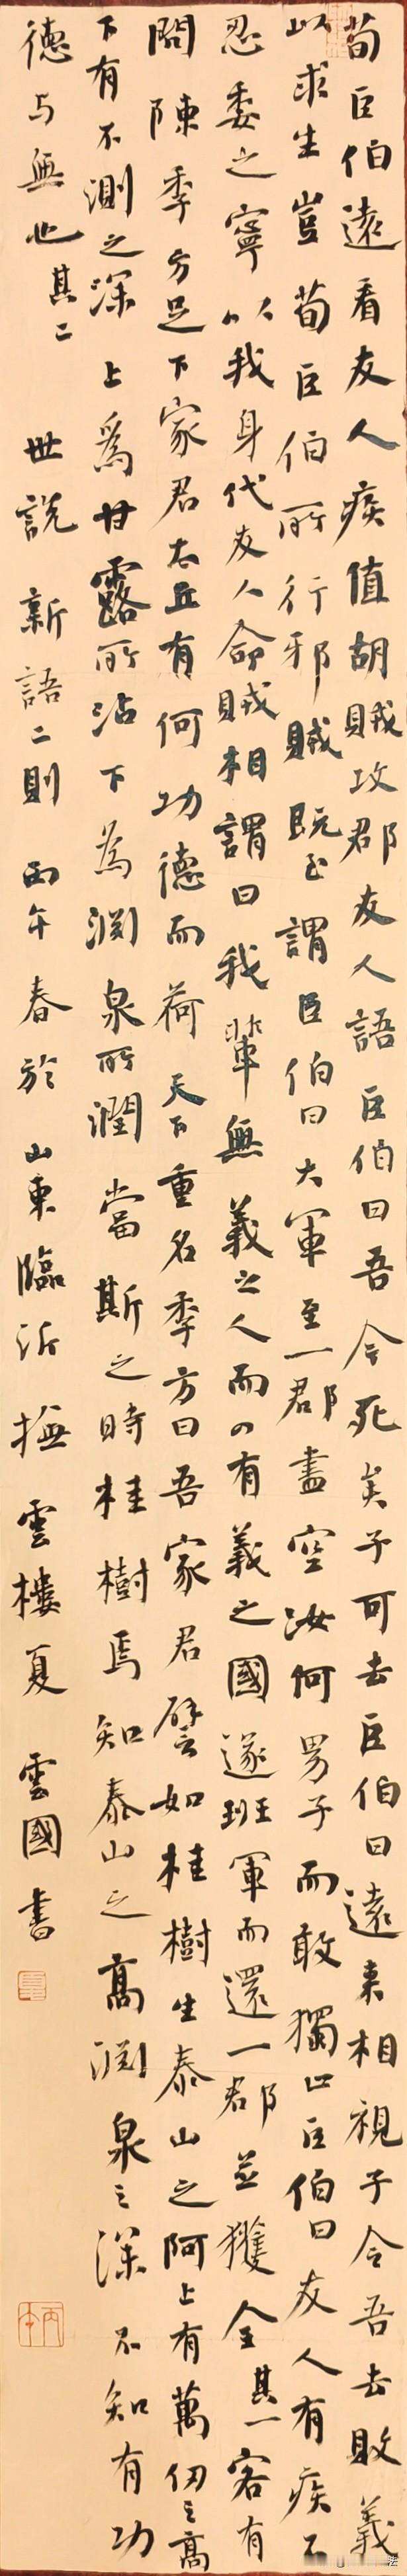 荀巨伯遠看友人疾值胡賊攻郡友人語巨伯曰吾今死矣子可去巨伯曰遠來相視子令吾去敗義
以求生豈荀巨伯所行邪賊既至謂巨伯曰大軍至一郡盡空汝何男子而敢獨止巨伯曰友人有疾不
忍委之寧以我身代友人命賊相謂曰我輩無義之人而入有義之國遂班軍而還一郡並獲全其一客有
問陳季方足下家君太丘有何功德而荷天下重名季方曰吾家君譬如桂樹生泰山之阿上有萬仞之高
下有不測之深上為甘露所沾下為淵泉所潤當斯之時桂樹焉知泰山之高淵泉之深不知有功
德与無也其二 世説新語二則 丙午春於山東臨沂撫雲樓夏雲國書
丙午
法